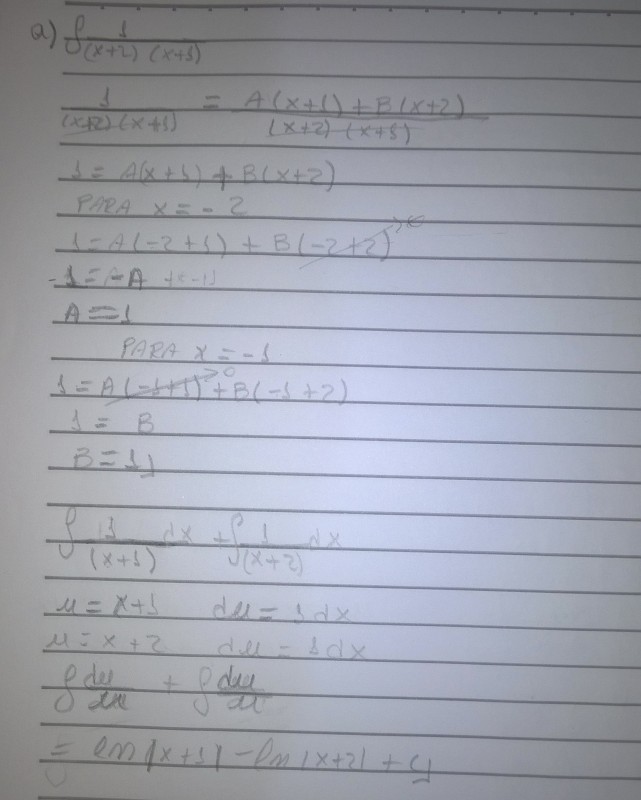 a) ∫ 1/((x+2) (x+1))
1/((x+2)(x+1)) = (A(x+1) + B(x+2))/((x+2)(x+1))
1 = A(x+1) + B(x+2)
PARA x = -2
1 = A(-2+1) + B(-2+2)→0
-1 = -A
A = 1
PARA x = -1
1 = A(-1+1)→0 + B(-1+2)
1 = B
B = 1
∫ 1/(x+1) dx + ∫ 1/(x+2) dx
u = x+1 du = 1dx
u = x+2 du = 1dx
∫ du/ + ∫ du/
= ln|x+1| - ln|x+2| + C